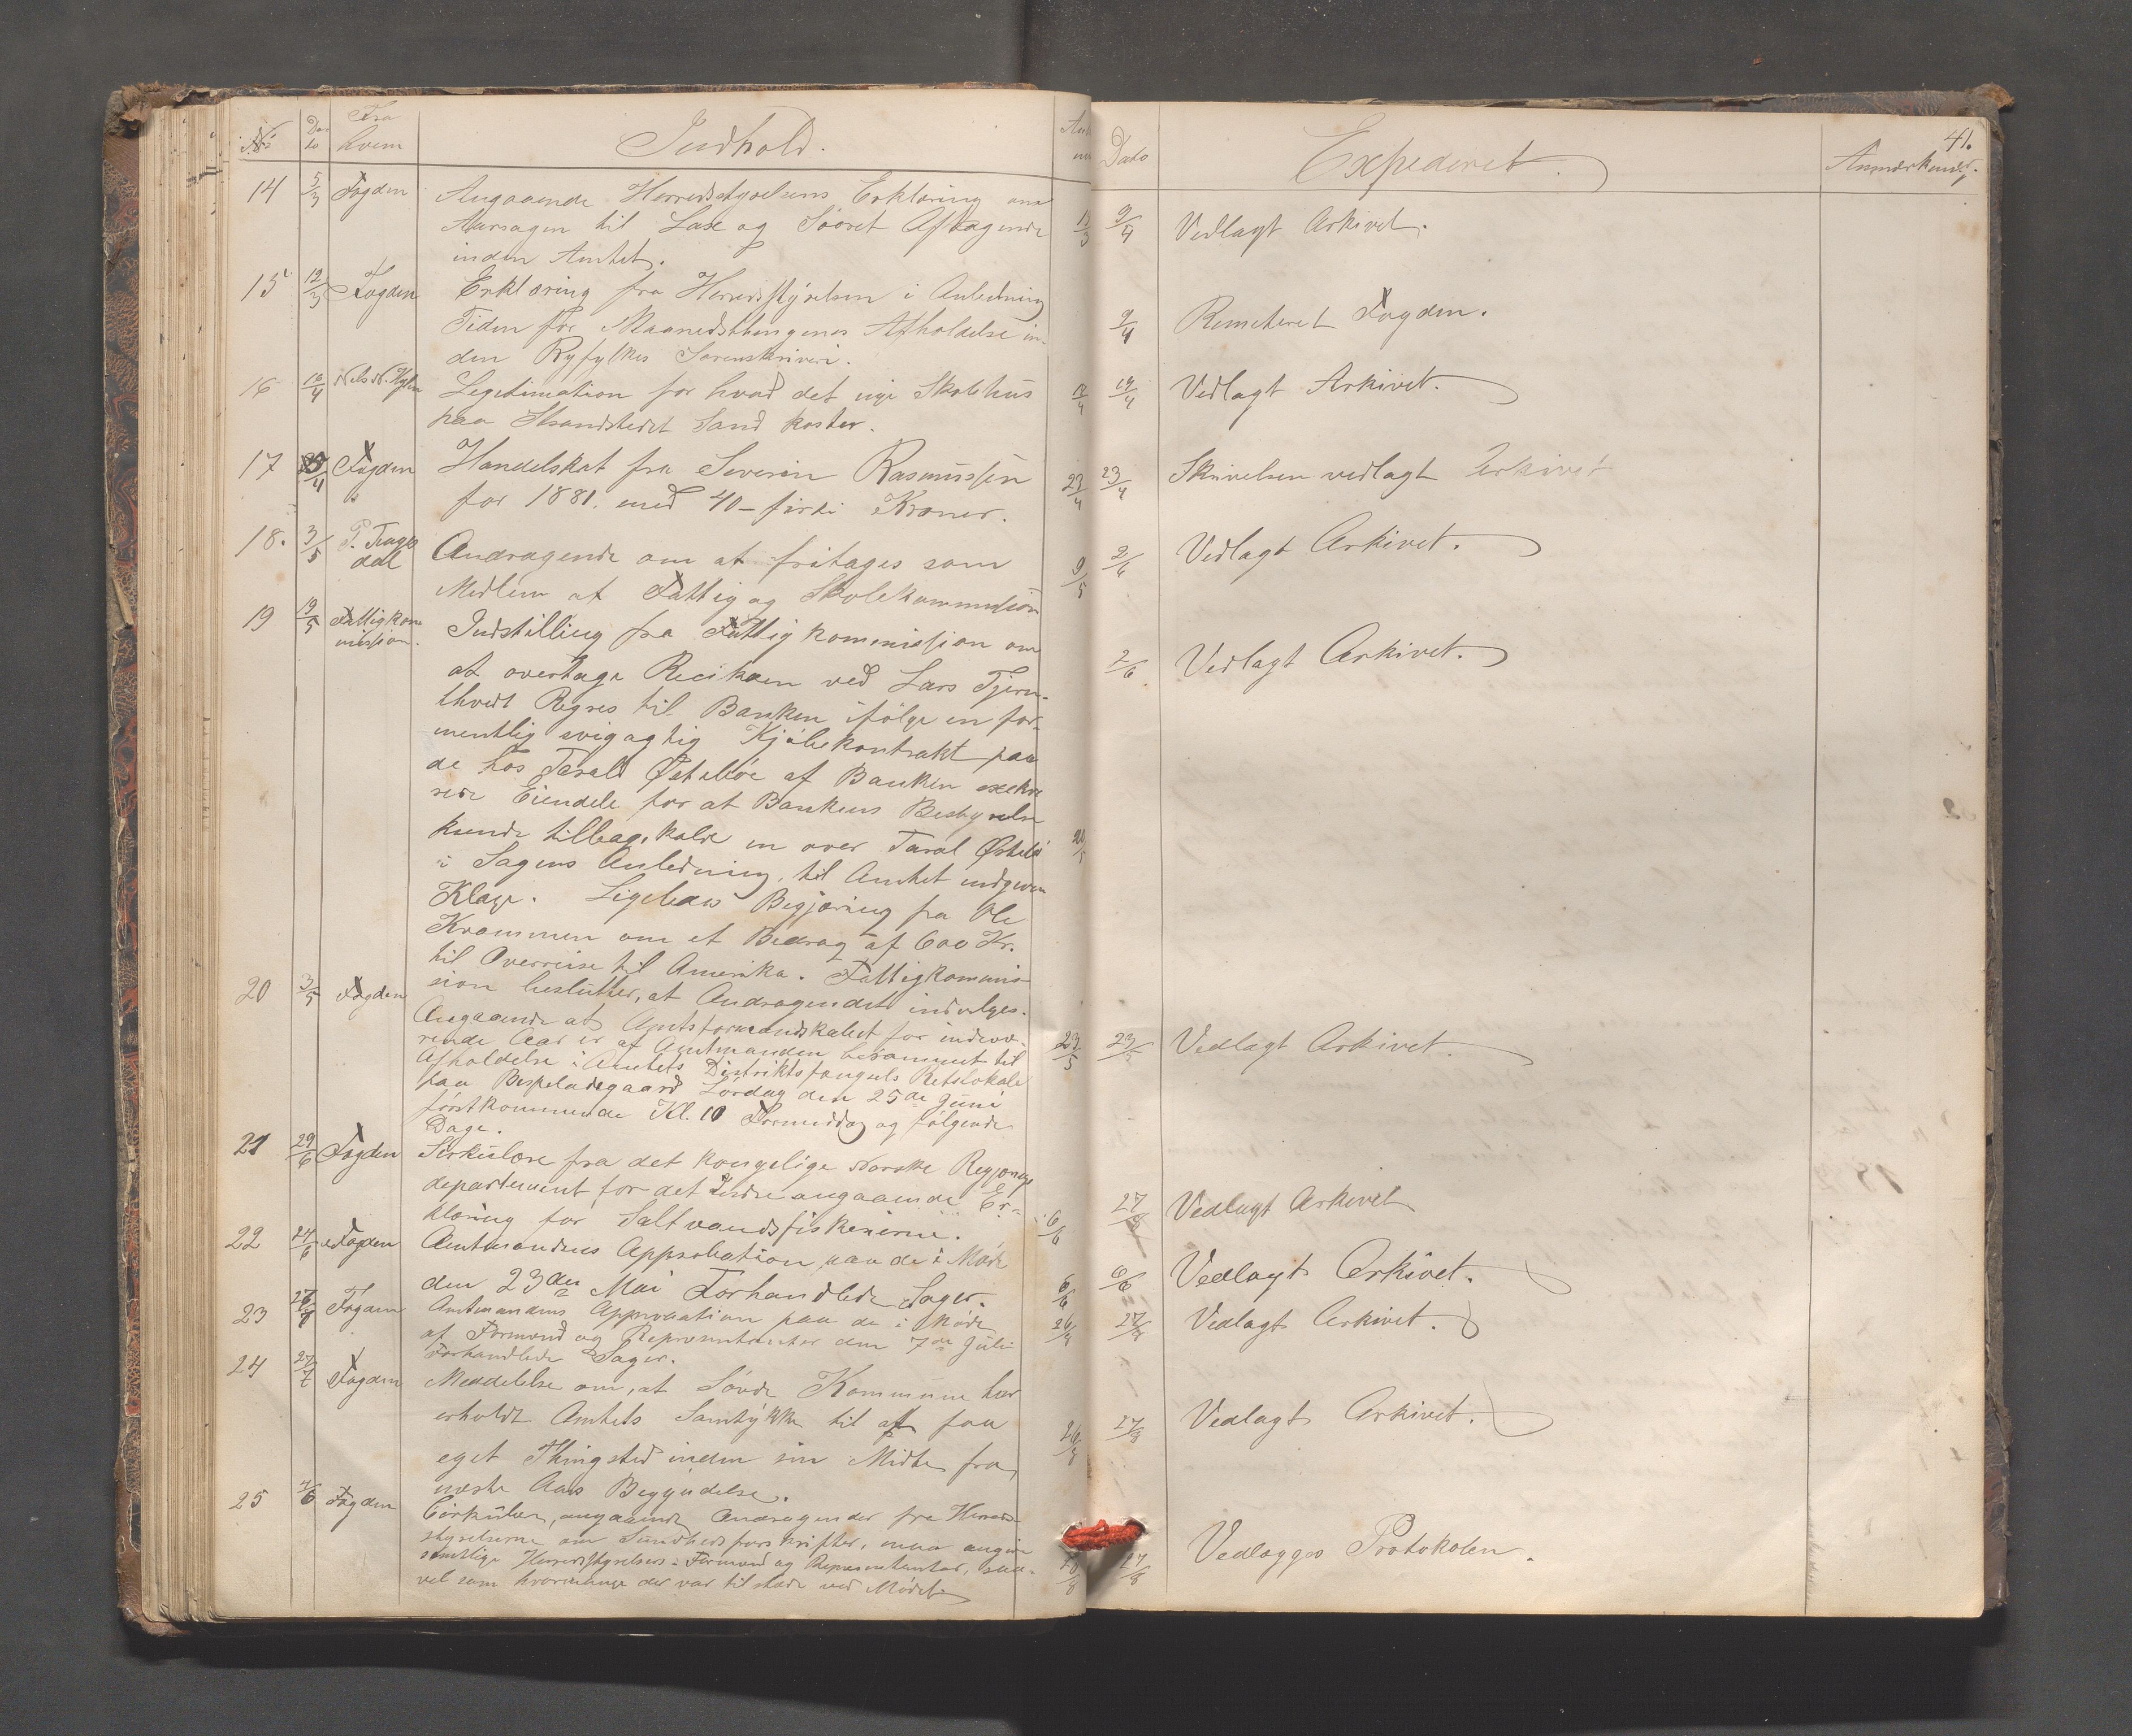 No Dato Fra hvem Indhold. Dato Expederet. Anmærkning. 41.
14 5/3 Fogden Angaaende Herredsstyrelsens Erklæring om
Aarsagen til Laxe og Sööret Aftagende 9/4 Vedlagt Arkivet.
inden Amtet.
15 12/3 Fogden Erklæring fra Herredsstyrelsen i Anledning
Tiden for Maanedsthingenes Afholdelse in- 9/4 Remitteret Fogden.
den Ryfylkes Sorenskriveri.
16 Legitimation for hvad det nye Skolehus 19/4 Vedlagt Arkivet.
paa Strandstedet Sand koster.
17 Fogden Handelskat fra Severin Rasmussen 23/4 23/4 Skrivelsen vedlagt Arkivet
for 1881. med 40 - firti Kroner.
18. 3/5 P. Tragedal Andragende om at fritages som 9/5 2/6 Vedlagt Arkivet.
Medlem af Fattig og Skolekommission
19 19/5 Fattigkommission. Indstilling fra Fattigkommission om
at overtage Recikoen ved Lars Tjern- 2/6 Vedlagt Arkivet.
thvedt Regres til Banken ifölge en for-
mentlig svigagtig Kjöbekontrakt paa
de hos Tarald Östeböe af Banken exekve
rede Eiendele for at Bankens Bestyrelse
kunde tilbagekalde en over Taral Östebö
i Sagens Anledning, til Amtet indgiven
Klage. Ligeledes Begjæring fra Ole
Krommen om et Bedrag af 600 Kr.
til Overreise til Amerika. Fattigkommis-
sion beslutter, at Andragendet indvilges.
20 3/5 Fogden Angaaende at Amtsformandskabet for indevæ-
rende Aar er af Amtmanden berammet til 23/5 23/5 Vedlagt Arkivet.
Afholdelse i Amtets Distriktsfængsels Retslokale
paa Bispeladegaard Lördag den 25de Juni
förstkommende Kl. 10 Formiddag og fölgende
Dage.
21 29/6 Fogden Sirkulære fra det kongelige Norske Regjerings
departement for det Indre angaaende Er- 27/8 Vedlagt Arkivet
klæring for Saltvandsfiskerierne. 6/6
22 24/6 Fogden Amtmandens Approbation paa de i Möde
den 23de Mai Forhandlede Sager. 6/6 6/6 Vedlagt Arkivet.
23 Fogden Amtmandens Approbation paa de i Möde 27/8 Vedlagt Arkivet.
af Formænd og Repræsentanter den 7de Juli
Forhandlede Sager.
24 27/7 Fogden Meddelelse om, at Sövde Kommune har
erholdt Amtets Samtykke til at faa 27/8 Vedlagt Arkivet.
eget Thingsted inden sin Midte fra
næste Aars Begyndelse.
25 Fogden Cirkulære, angaaende Andragender fra Herreds-
styrelserne om Sundhedsforskrifter, maa angive 27/8 Vedlægges Protokolen.
samtlige Herredsstyrelsers - Formænd og Repræsentanter, saa-
vel som hvormange der var tilstede ved Mödet.